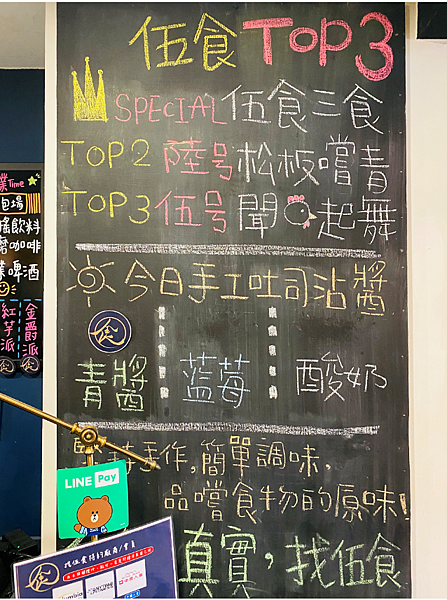 伍食TOP3
SPECIAL伍食三食
TOP2 陸号松板嚐青
TOP3 伍号聞起舞
今日手工吐司沾醬
青醬 藍莓 酸奶
堅持手作,簡單調味,
品嚐食物的原味!
真實,找伍食
Time
包場
飲料
咖啡
啤酒
紅芋派
金爵派
LINE Pay